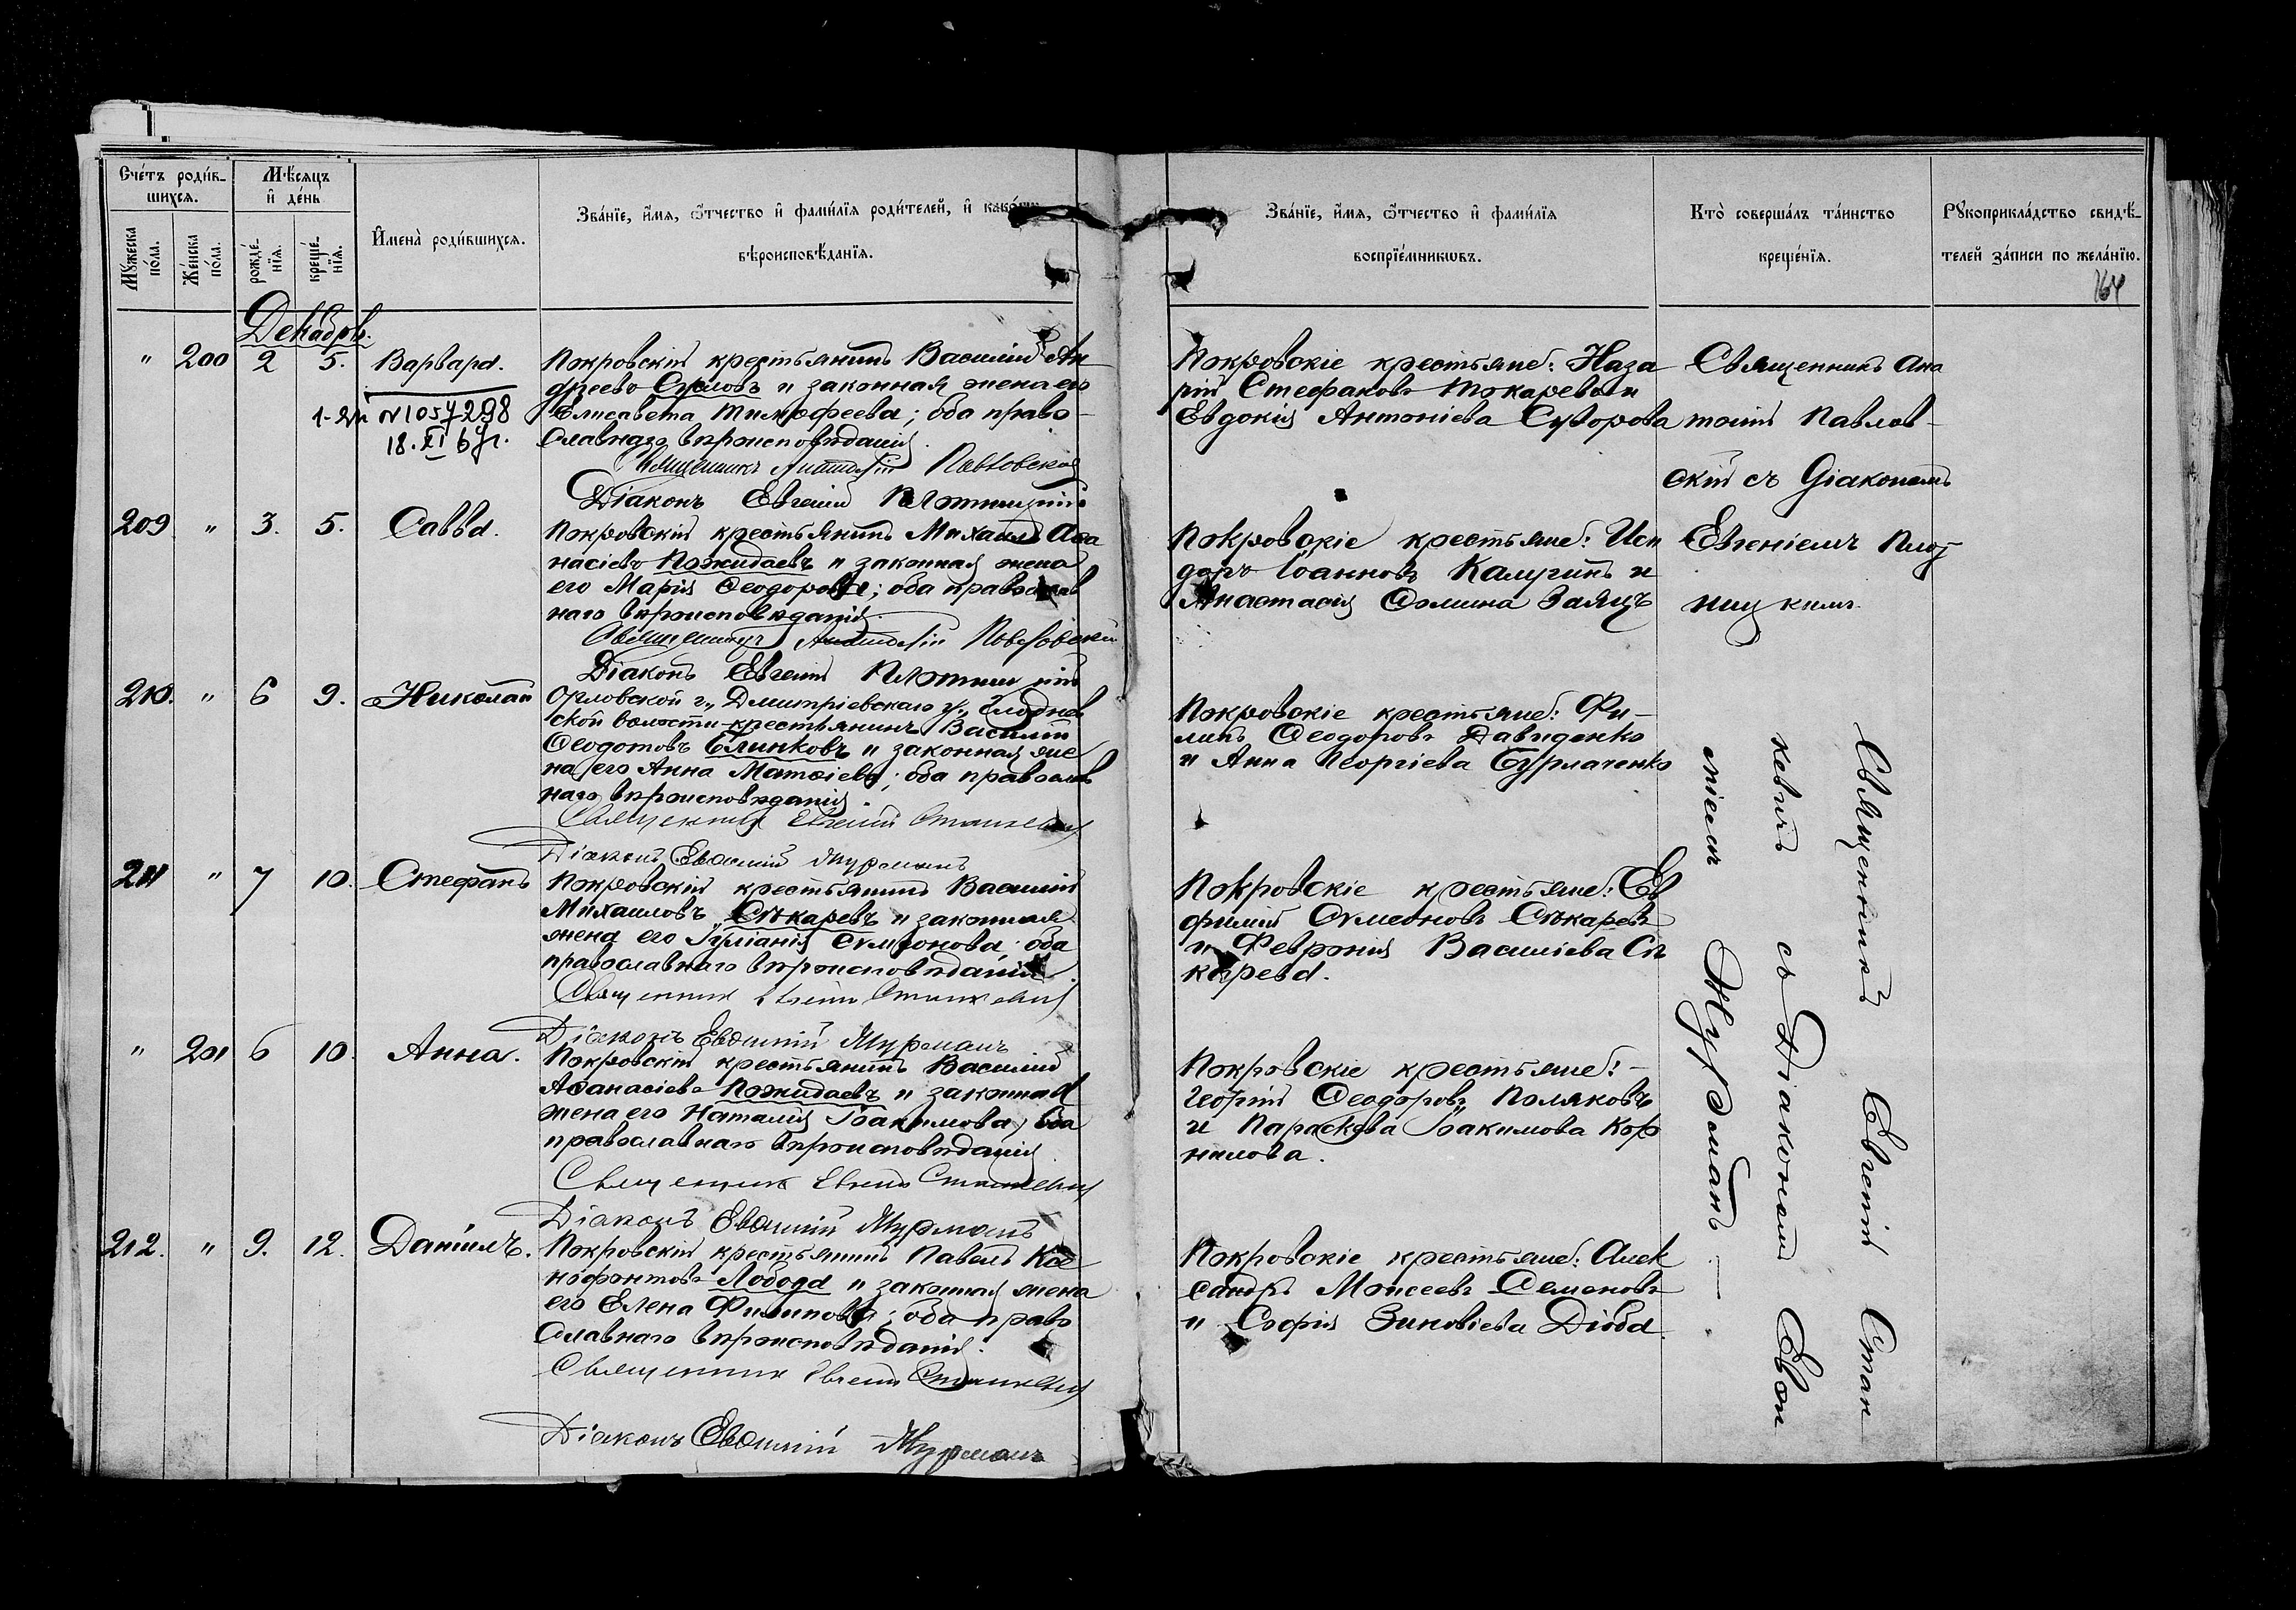 Счетъ родив-
шихся.
Мѣсяцъ
и день
Мужеска
пола.
Женска
пола.
рожде-
нія.
креще-
нія.
Имена родившихся.
Званіе, имя, отчество и фамилія родителей, и какого
вѣроисповѣданія.
Званіе, имя, отчество и фамилія
воспріемниковъ.
Кто совершалъ таинство
крещенія.
Рукоприкладство свидѣ-
телей записи по желанію.
164
Декабрь.
" 200 2 5. Варвара.
18. XI 67г.
Покровскій крестьянинъ Василій Ан
дреевъ и законная жена его
Елисавета Тимофеева; оба право-
славнаго вѣроисповѣданія.
Священникъ Анатолій Павловскій
Діаконъ Евгеній Плотницкій
Покровскіе крестьяне: Наза
рій Стефановъ Токаревъ и
Евдокія Антоніева Суворова
Священникъ Ана
толій Павлов-
скій съ Діакономъ
Евгеніемъ Плот
ницкимъ.
209 " 3. 5. Савва.
Покровскій крестьянинъ Михаилъ Аѳа
насіевъ Пожидаевъ и законная жена
его Марія Ѳеодорова; оба православ
наго вѣроисповѣданія.
Священникъ Анатолій Павловскій
Діаконъ Евгеній Плотницкій
Покровскіе крестьяне: Иси
доръ Іоанновъ Калугинъ и
Анастасія Ѳомина Заяцъ
210. " 6 9. Николай
Орловской г., Дмитріевскаго у.,
ской волости крестьянинъ Василій
Ѳеодотовъ Блинковъ и законная же
на его Анна Матѳіева; оба православ
наго вѣроисповѣданія.
Священникъ Евгеній Станкевич
Діаконъ Евѳимій Мурманъ
Покровскіе крестьяне: Фи-
липъ Ѳеодоровъ Давиденко
и Анна Георгіева Бурлаченко
Священникъ Евгеній Стан
кевичъ съ Діакономъ Евѳи
міемъ Мурманъ
211 " 7 10. Стефанъ
Покровскій крестьянинъ Василій
Михаиловъ Сѣкаревъ и законная
жена его Іуліанія Симеонова; оба
православнаго вѣроисповѣданія.
Священник Евгеній Станкевич
Діаконъ Евѳимій Мурманъ
Покровскіе крестьяне: Ев
фимій Симеоновъ Сѣкаревъ
и Февронія Василіева Сѣ
карева.
" 201 6 10. Анна.
Покровскій крестьянинъ Василій
Аѳанасіевъ Пожидаевъ и законная
жена его Наталія Іоакимова; оба
православнаго вѣроисповѣданія.
Священник Евгеній Станкевич
Діаконъ Евѳимій Мурманъ
Покровскіе крестьяне: -
Георгій Ѳеодоровъ Поляковъ
и Параскева Іоакимова Кор
нилова.
212. " 9. 12. Даніилъ.
Покровскій крестьянинъ Павелъ Ксе
нофонтовъ Лобода и законная жена
его Елена Филипова; оба право
славнаго вѣроисповѣданія.
Священник Евгеній Станкевич
Діаконъ Евѳимій Мурманъ
Покровскіе крестьяне: Алек
сандръ Моисеевъ Семеновъ
и Софія Зиновіева Дзюба